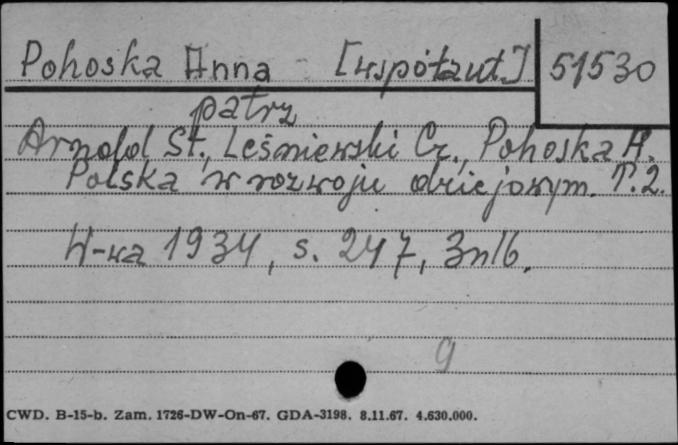 Pohoska Anna [współaut.] 51530
patrz
Arnold St., Leśniewski Cz., Pohoska H.
Polska w rozwoju dziejowym. T. 2.
W-wa 1934, s. 247, 3nlb.
9
CWD. B-15-b. Zam. 1726-DW-On-67. GDA-3198. 8.11.67. 4.630.000.